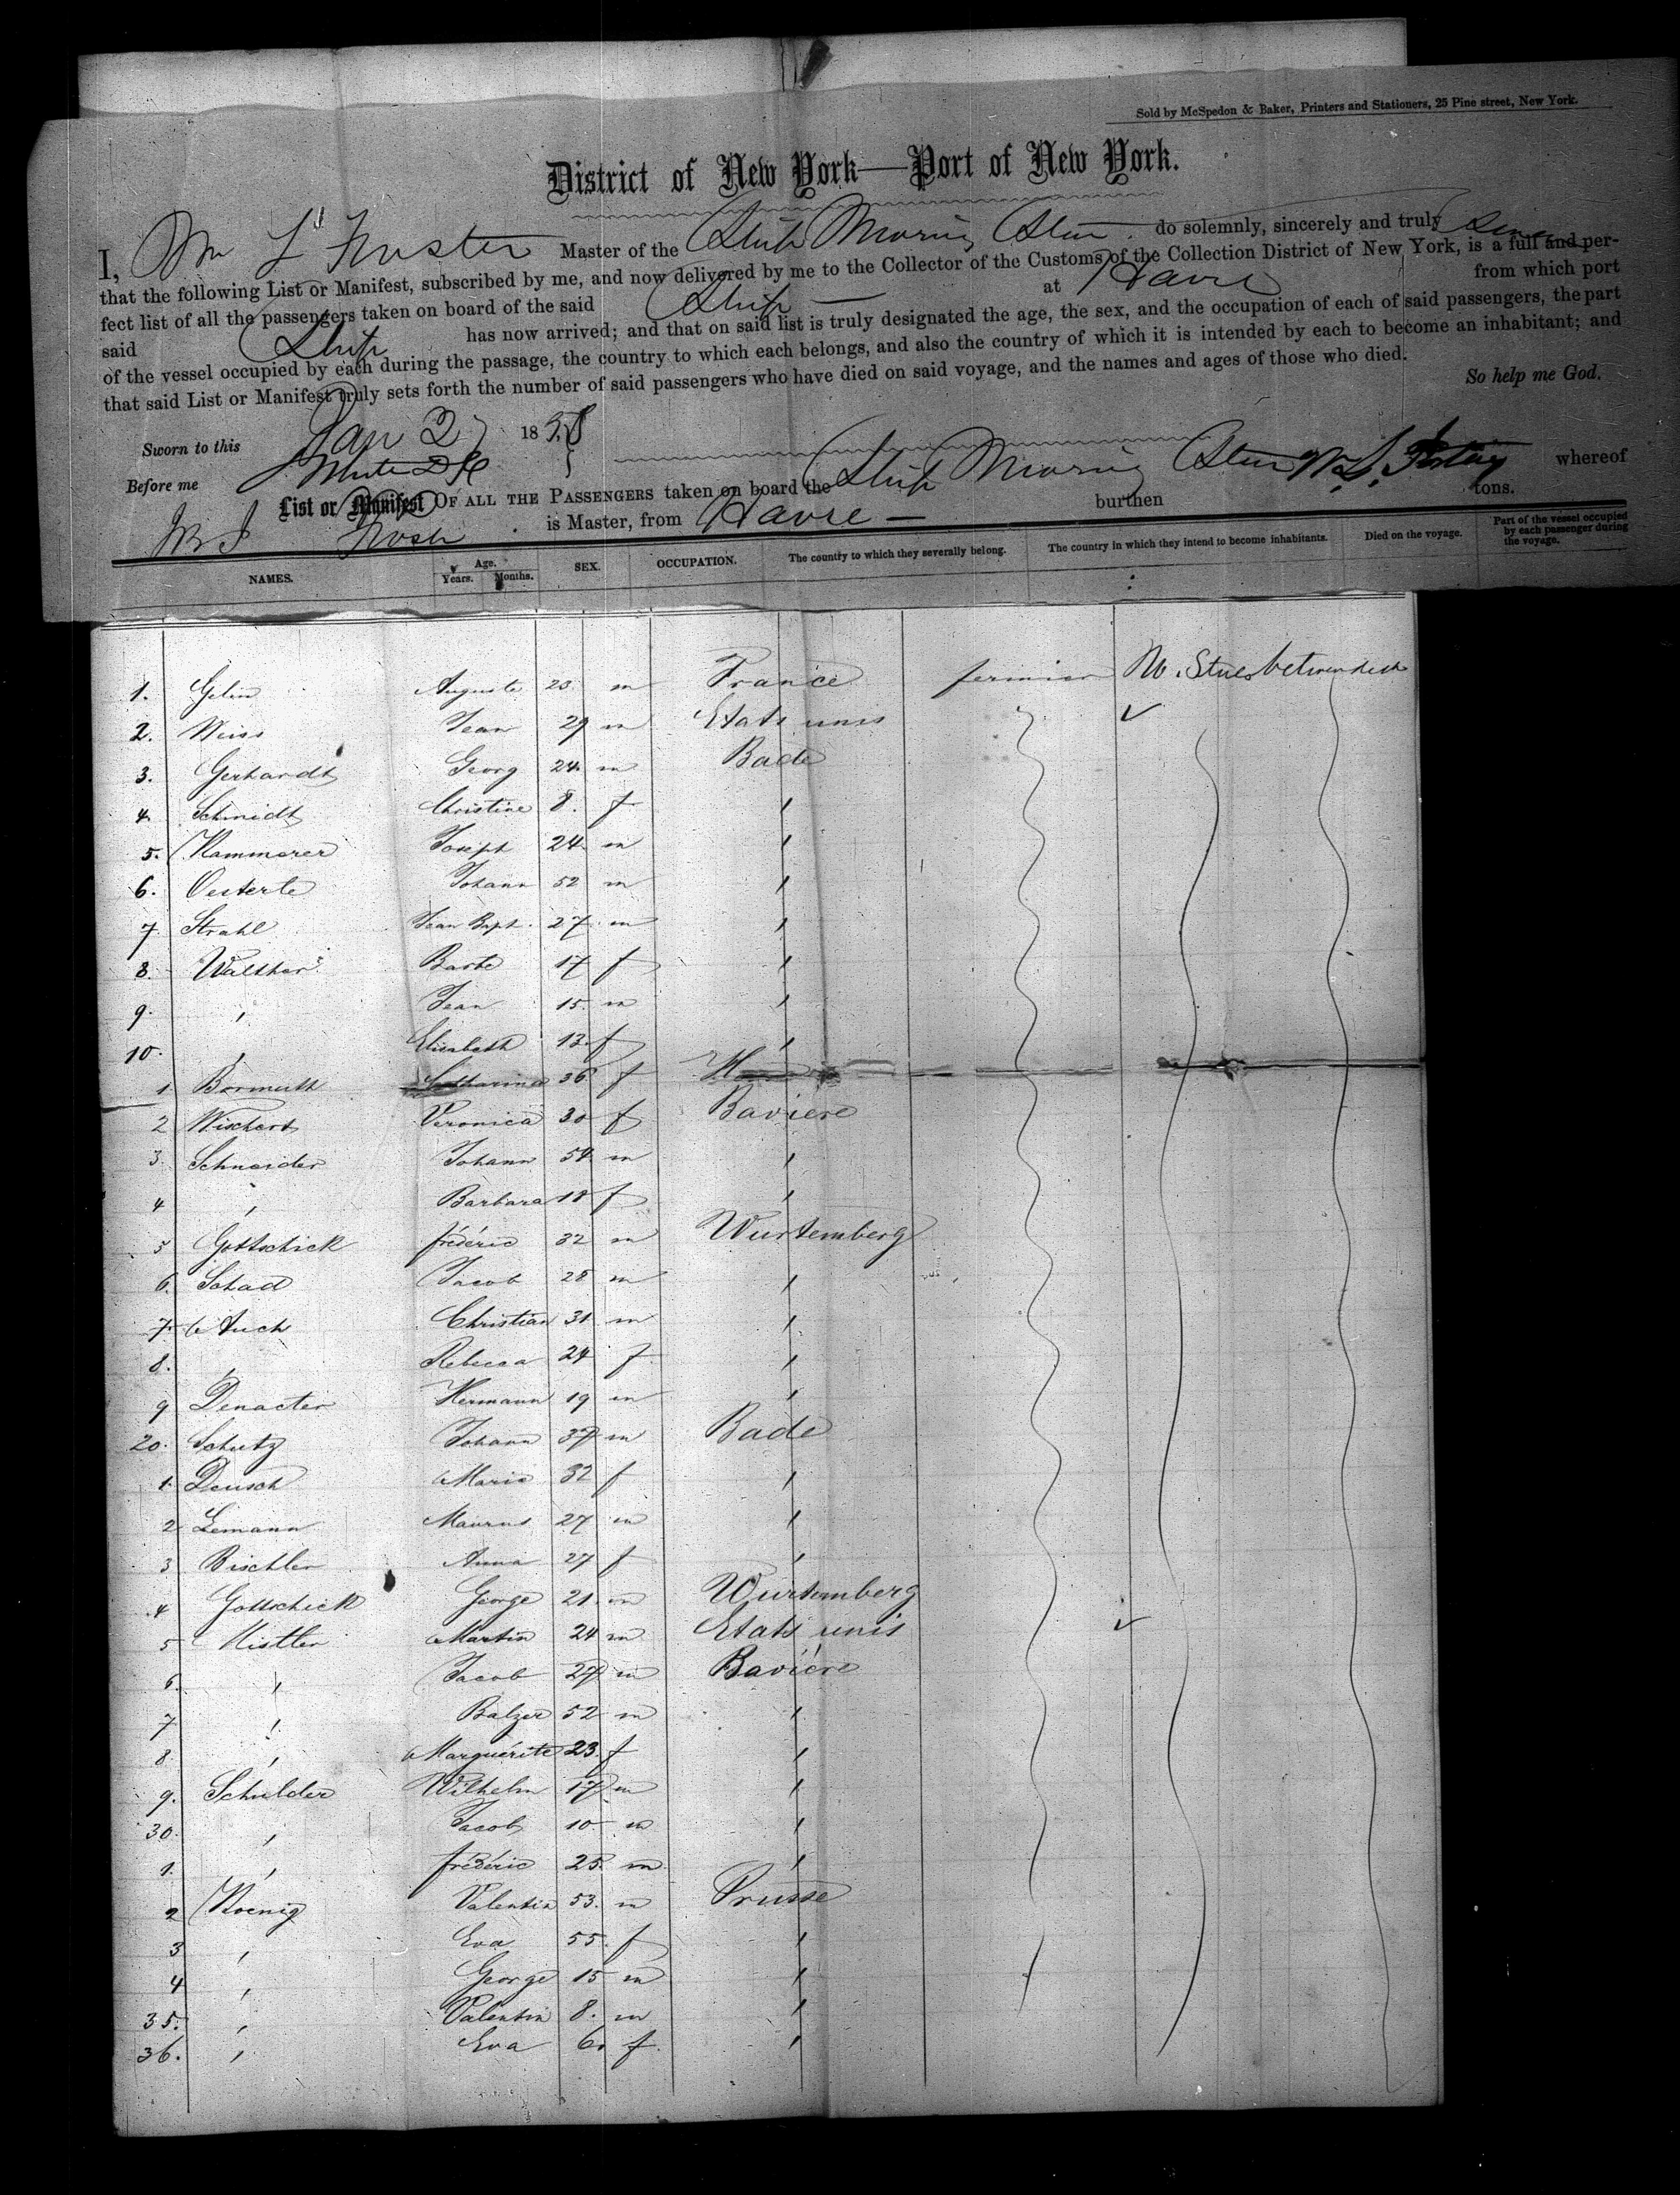 Sold by McSpedon & Baker, Printers and Stationers, 25 Pine street, New York.
District of New York—Port of New York.
I, Wm L Foster Master of the Ship Morning Star do solemnly, sincerely and truly swear
that the following List or Manifest, subscribed by me, and now delivered by me to the Collector of the Customs of the Collection District of New York, is a full and per-
fect list of all the passengers taken on board of the said Ship — at Havre from which port
said Ship has now arrived; and that on said list is truly designated the age, the sex, and the occupation of each of said passengers, the part
of the vessel occupied by each during the passage, the country to which each belongs, and also the country of which it is intended by each to become an inhabitant; and
that said List or Manifest truly sets forth the number of said passengers who have died on said voyage, and the names and ages of those who died.
So help me God.
Sworn to this Jan 2 1858
Before me
List or Manifest OF ALL THE PASSENGERS taken on board the Ship Morning Star whereof
is Master, from Havre — burthen tons.
NAMES. Age. Years. Months. SEX. OCCUPATION. The country to which they severally belong. The country in which they intend to become inhabitants. Died on the voyage. Part of the vessel occupied by each passenger during the voyage.
1. Gelin Auguste 23 m France fermier
2. Weiss Jean 29 m Etats unis ✓
3. Gerhardt Georg 24 m Bade
4. Schmidt Christine 8. f "
5. Kammerer Joseph 24 m "
6. Oesterle Johann 52 m "
7 Strahl Jean Bapt. 27 m "
8. Walther Barbe 17 f "
9. " Jean 15 m "
10. " Elisabeth 13 f "
1 Bormuth Catharina 36 f
2 Wischert Veronica 30 f Baviere
3. Schneider Johann 54 m "
4 " Barbara 18 f "
5 Gottschick fréderic 32 m Wurtemberg
6. Schad Jacob 28 m "
7. Auch Christian 31 m "
8. " Rebecca 24 f "
9 Denacter Hermann 19 m "
20. Schutz Johann 37 m Bade
1. Deusch Marie 32 f "
2 Lemann Maurus 27 m "
3 Bischler Anna 27 f "
4 Gottschick George 21 m Wurtemberg
5 Kistler Martin 24 m Etats unis ✓
6. " Jacob 27 m Baviere
7 " Balzer 52 m "
8. " Marguérite 23 f "
9. Schulder Wilhelm 17 m "
30. " Jacob 10 m "
1. " fréderic 25. m "
2 Koenig Valentin 53. m Prusse
3 " Eva 55 f "
4 " George 15 m "
35. " Valentin 8. m "
36. " Eva 6 f "